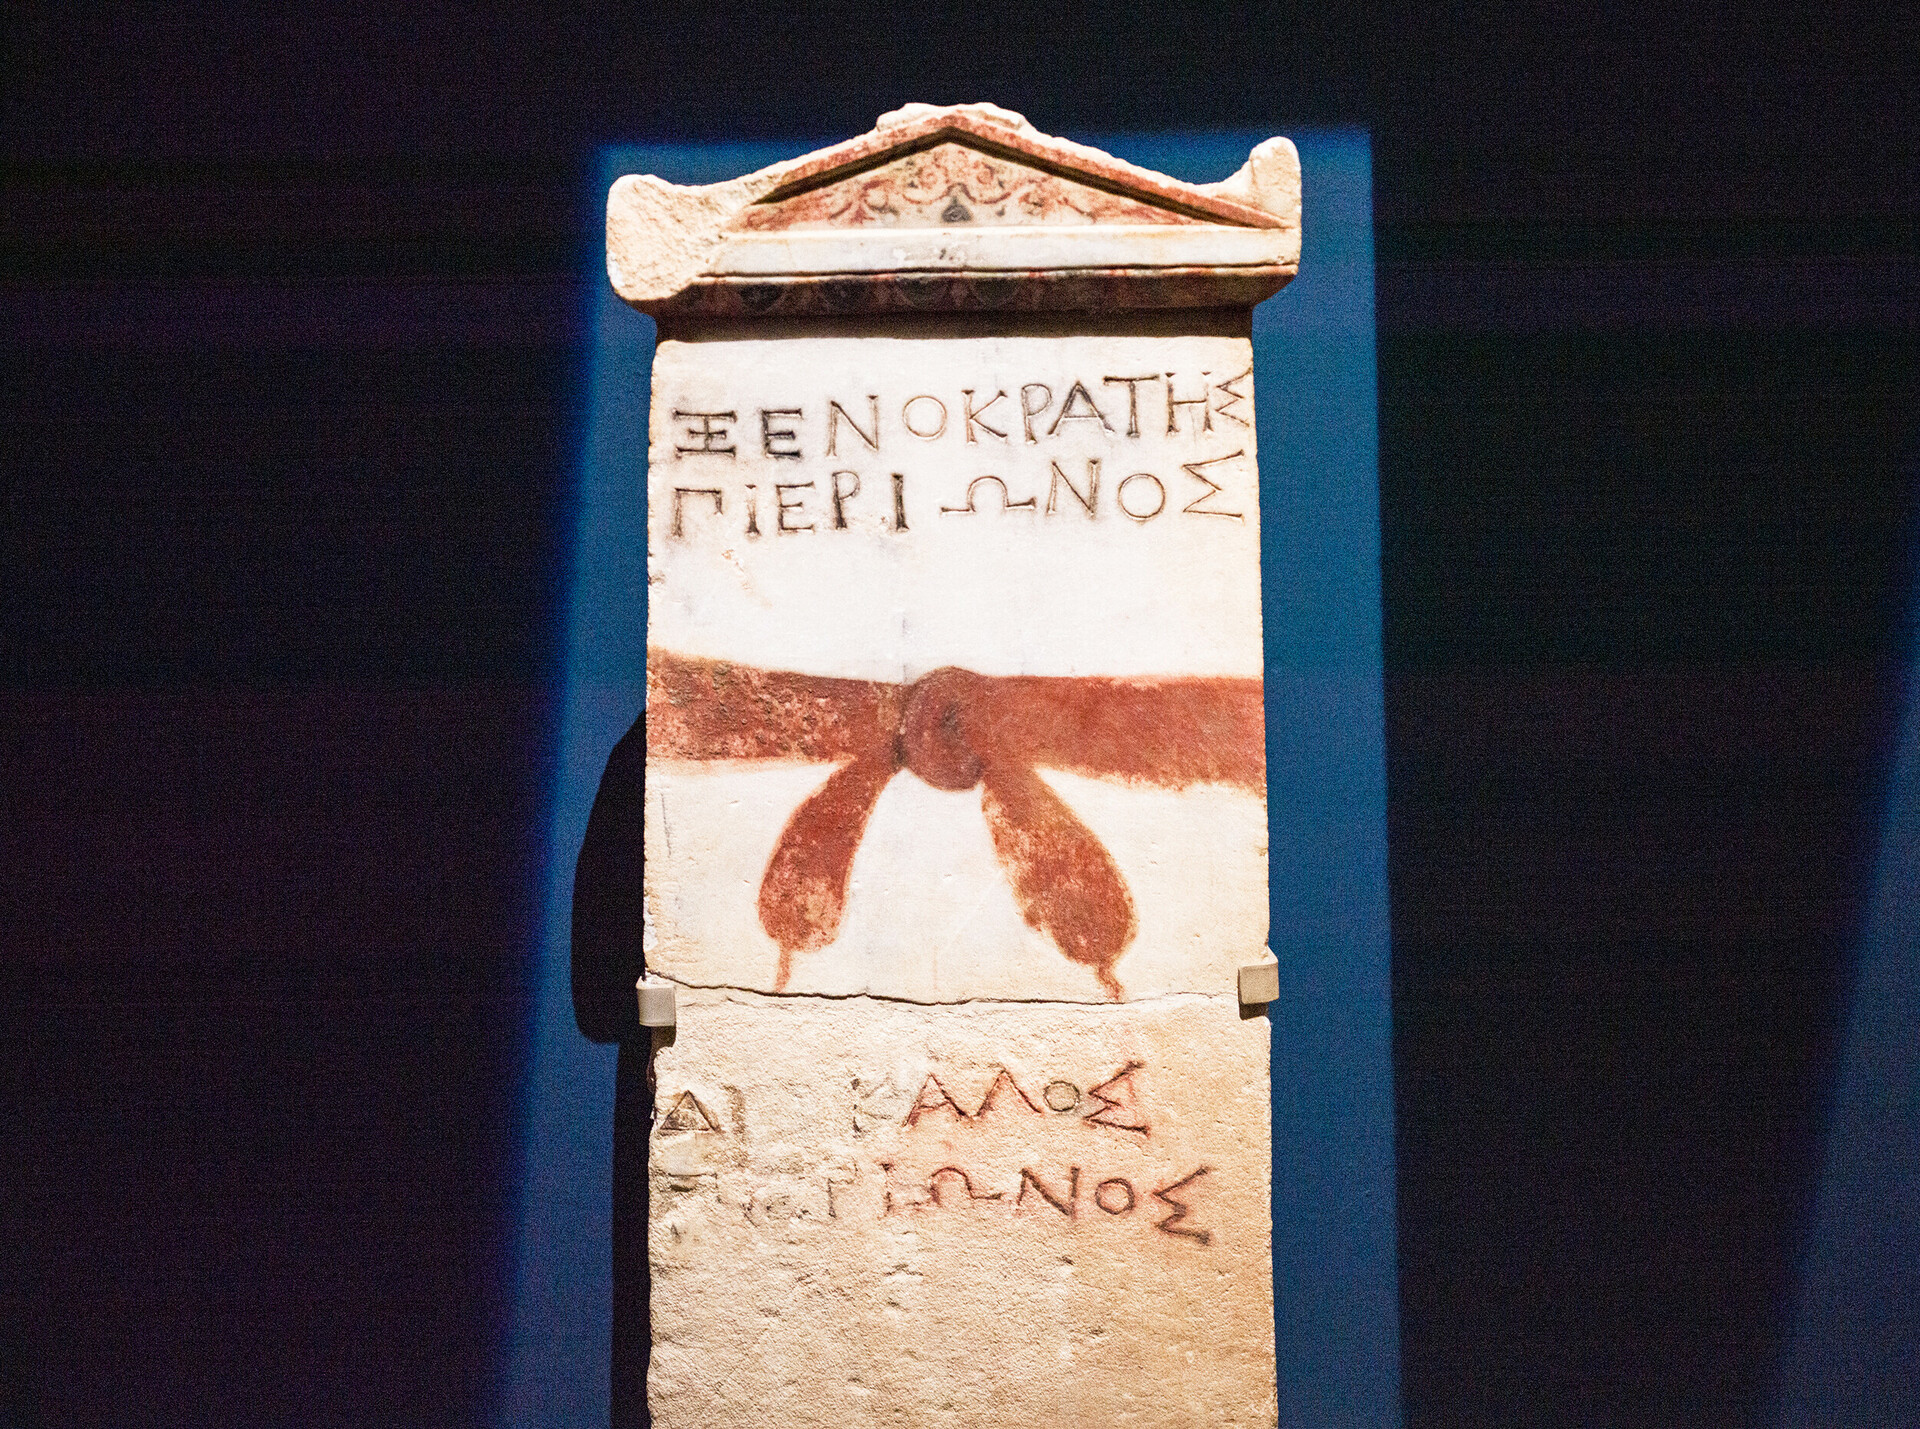 ΞΕΝΟΚΡΑΤΗΣ
ΠΙΕΡΙΩΝΟΣ
ΚΑΛΟΣ
ΠΙΕΡΙΩΝΟΣ